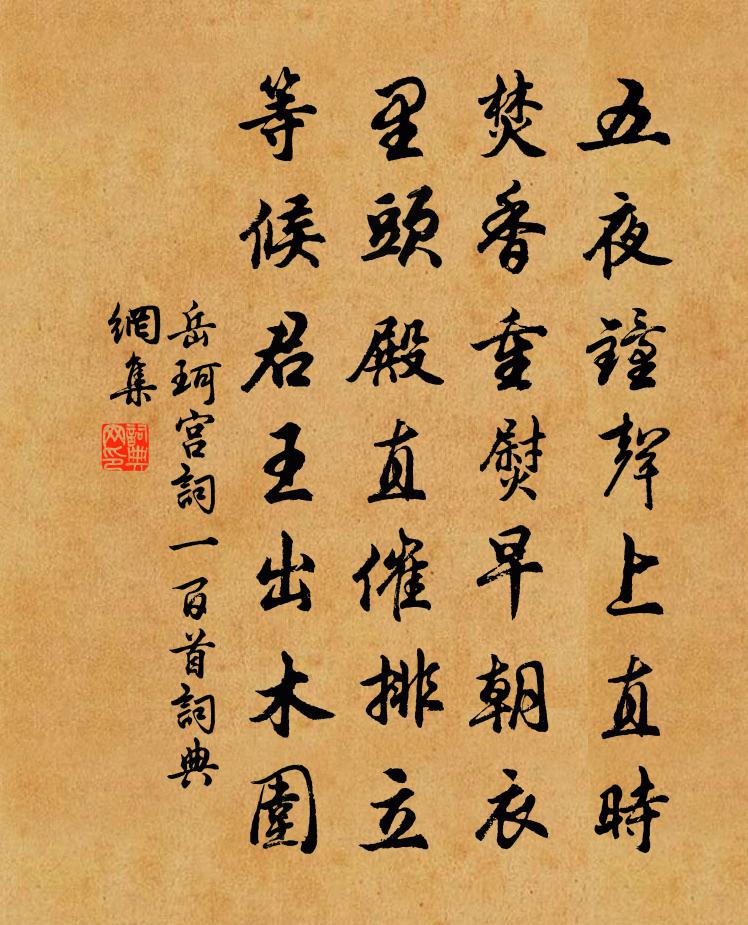 五夜鐘聲上直時
焚香重熨早朝衣
里頭殿直催排立
等候君王出木圍
岳珂宮詞一百首詞典
網集
詞典
网印